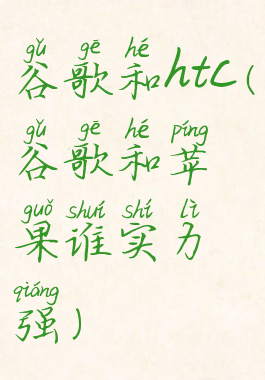 gǔ gē hé
谷歌和htc(
gǔ gē hé píng
谷歌和苹
guǒ shuí shí lì
果谁实力
qiáng
强)